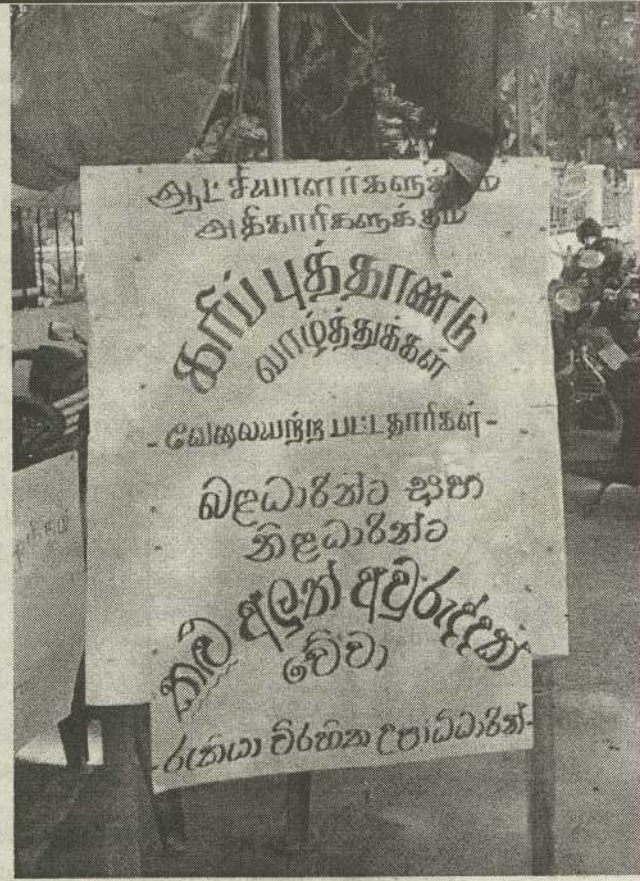 ஆட்சியாளர்களுக்கும்
அதிகாரிகளுக்கும்
கரிப்புத்தாண்டு
வாழ்த்துக்கள்
- வேலையற்ற பட்டதாரிகள் -
බළධාරින්ට සහ
නිළධාරින්ට
අලුත් අවුරුද්දක්
වේවා
- රැකියා විරහිත උපාධිධාරින් -